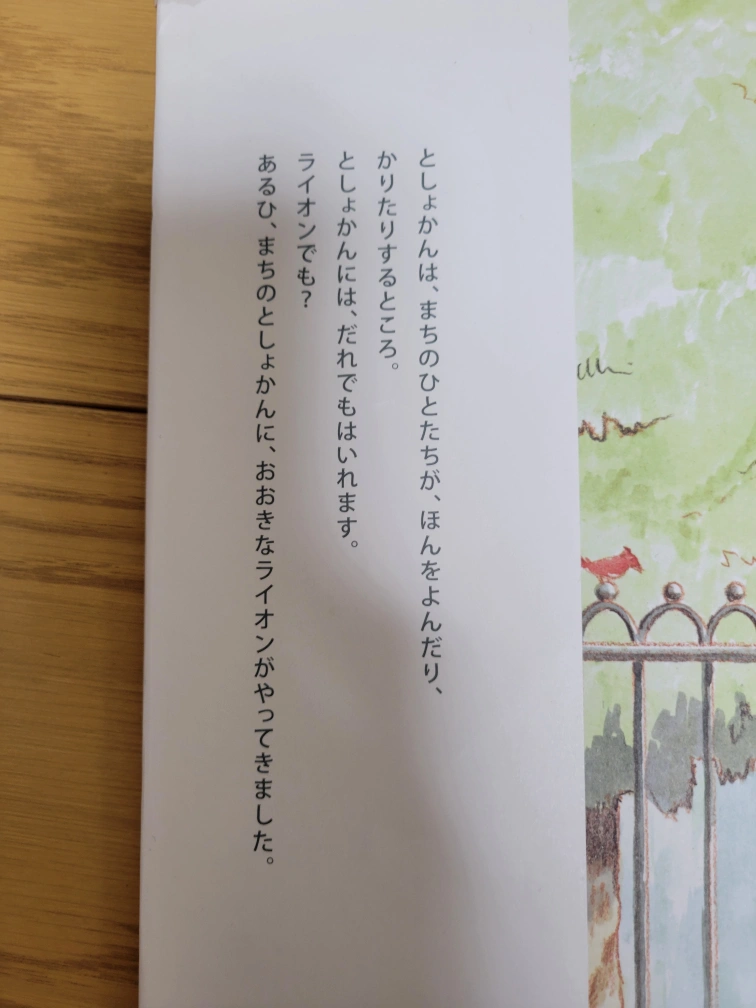 としょかんは、まちのひとたちが、ほんをよんだり、
かりたりするところ。
としょかんには、だれでもはいれます。
ライオンでも？
あるひ、まちのとしょかんに、おおきなライオンがやってきました。